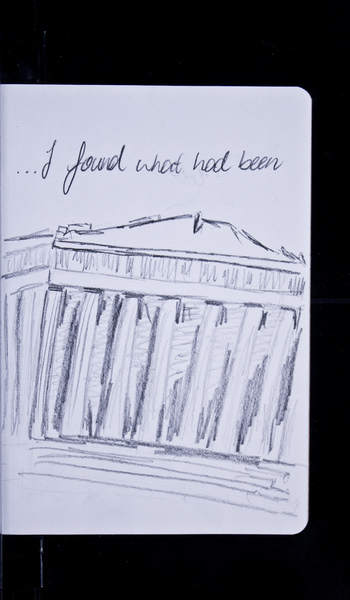 ...I found what had been